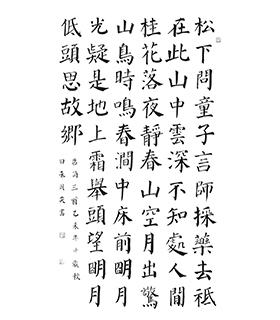 松下問童子言師採藥去祗
在此山中雲深不知處人間
桂花落夜靜春山空月出驚
山鳥時鳴春澗中床前眀月
光疑是地上霜舉頭望眀月
低頭思故鄉
唐詩三首乙未年
書